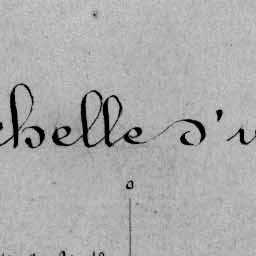 chelle d'u
0